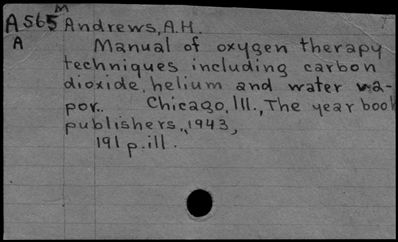 M
A565 Andrews, A.H.
A Manual of oxygen therapy
techniques including carbon
dioxide, helium and water va-
por. Chicago, Ill., The year book
publishers, 1943,
191 p. ill.